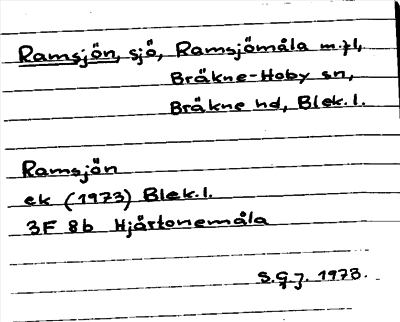 Ramsjön, sjö, Ramsjömåla m.fl,
Bräkne-Hoby sn,
Bräkne hd, Blek.l.
Ramsjön
ek (1973) Blek.l.
3F 8b Hjärtonemåla
S.G.J. 1973.